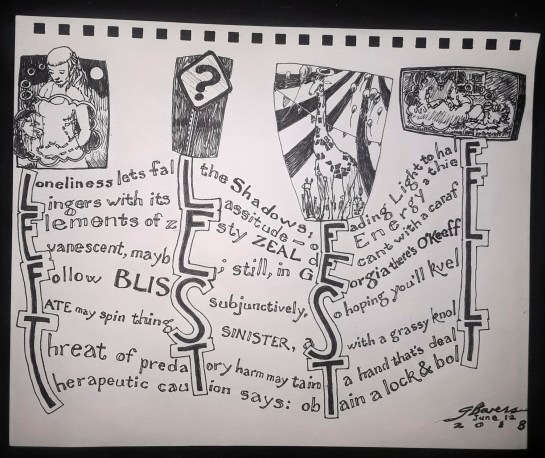 ?
Loneliness lets falL the Shadows; Fading Light to halF
Lingers with its Lassitude – oF Energy a thieF
Elements of zEsty ZEAL dEscant with a carefE
Evanescent, maybE; still, in GEorgia there's O'KeeffE
Follow BLISS subjunctively, So hoping, you'll kvelL
FATE may spin thingS SINISTER, aS with a grassy knolL
Threat of predaTory harm may tainT a hand that's dealT
Therapeutic cauTion says: obTain a lock & bolT
June 12
2018